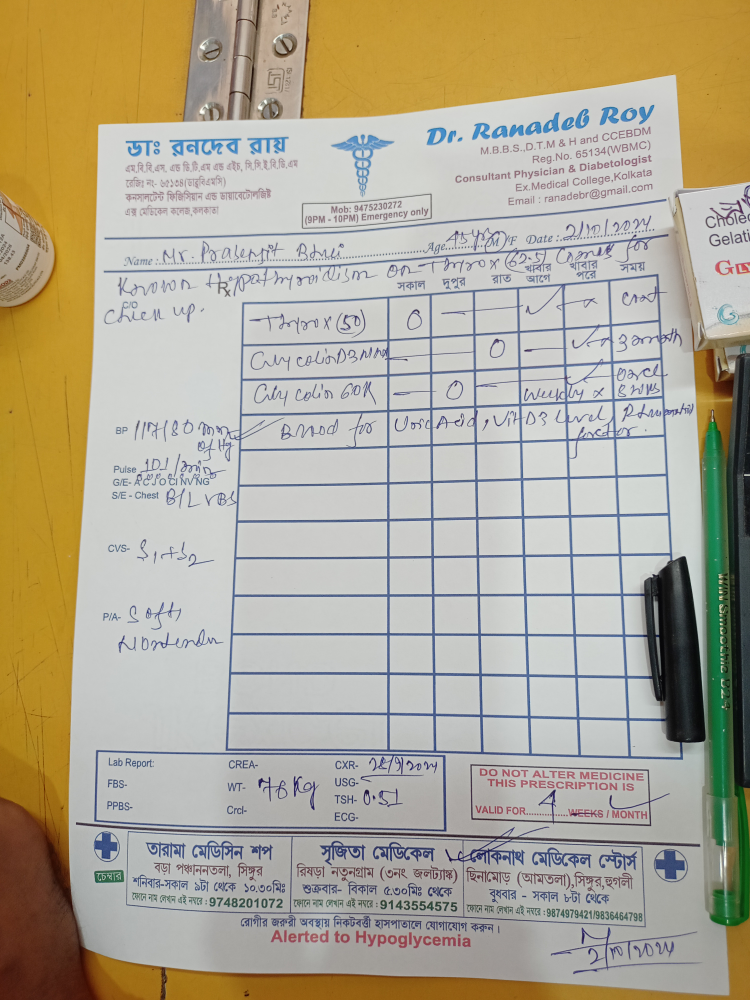 ডাঃ রনদেব রায়
এম.বি.বি.এস. এন্ড ডি.টি.এম এন্ড এইচ, সি.সি.ই.বি.ডি.এম
রেজিঃ নং- ৬৫১৩৪(ডাব্লুবিএমসি)
কনসালটেন্ট ফিজিসিয়ান এন্ড ডায়াবেটোলজিষ্ট
এক্স মেডিকেল কলেজ,কলকাতা
Mob: 9475230272
(9PM - 10PM) Emergency only
Dr. Ranadeb Roy
M.B.B.S.,D.T.M & H and CCEBDM
Reg.No. 65134(WBMC)
Consultant Physician & Diabetologist
Ex.Medical College,Kolkata
Email : ranadebr@gmail.com
Name : Mr. Age 45 yrs (M)/F Date : 2/10/2024
Known Hypothyroidism on Thyrox (62.5) Comes for
C/O
Check up.
Rx
সকাল দুপুর রাত খাবার আগে খাবার পরে সময়
Thyrox (50) O — — ✓ x Cont
O — 3 month
60K — O — Weekly x
Blood for Uric Acid, Vit D3 level, factor.
BP 117/80 mm of Hg
Pulse 101/min
G/E- A C J O C I N V N G
S/E - Chest B/L VBS
CVS- S1+S2
P/A- Soft,
Nontender
Lab Report:
FBS-
PPBS-
CREA-
WT- 76 Kg
Crcl-
CXR-
USG-
TSH- 0.51
ECG-
DO NOT ALTER MEDICINE
THIS PRESCRIPTION IS
VALID FOR 4 WEEKS / MONTH
চেম্বার
তারামা মেডিসিন শপ
বড়া পঞ্চাননতলা, সিঙ্গুর
শনিবার-সকাল ৯টা থেকে ১০.৩০মিঃ
ফোনে নাম লেখান এই নম্বরে : 9748201072
সৃজিতা মেডিকেল
রিষড়া নতুনগ্রাম (৩নং জলট্যাঙ্ক)
শুক্রবার- বিকাল ৫.৩০মিঃ থেকে
ফোনে নাম লেখান এই নম্বরে : 9143554575
লোকনাথ মেডিকেল স্টোর্স
ছিনামোড় (আমতলা),সিঙ্গুর,হুগলী
বুধবার - সকাল ৮টা থেকে
ফোনে নাম লেখান এই নম্বরে : 9874979421/9836464798
রোগীর জরুরী অবস্থায় নিকটবর্ত্তী হাসপাতালে যোগাযোগ করুন।
Alerted to Hypoglycemia
2/10/2024
Gelati